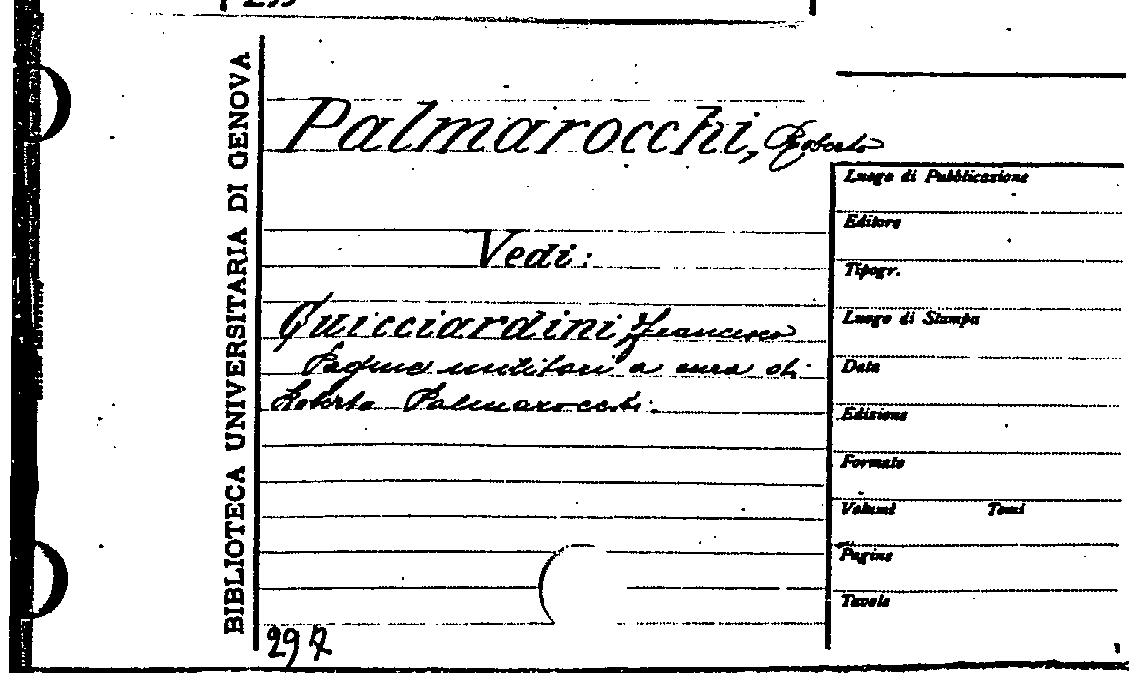 BIBLIOTECA UNIVERSITARIA DI GENOVA
Palmarocchi, Roberto
Vedi:
Guicciardini, Francesco
Pagine a cura di
Roberto Palmarocchi.
297
Luogo di Pubblicazione
Editore
Tipogr.
Luogo di Stampa
Data
Edizione
Formato
Volumi Tomi
Pagine
Tavole